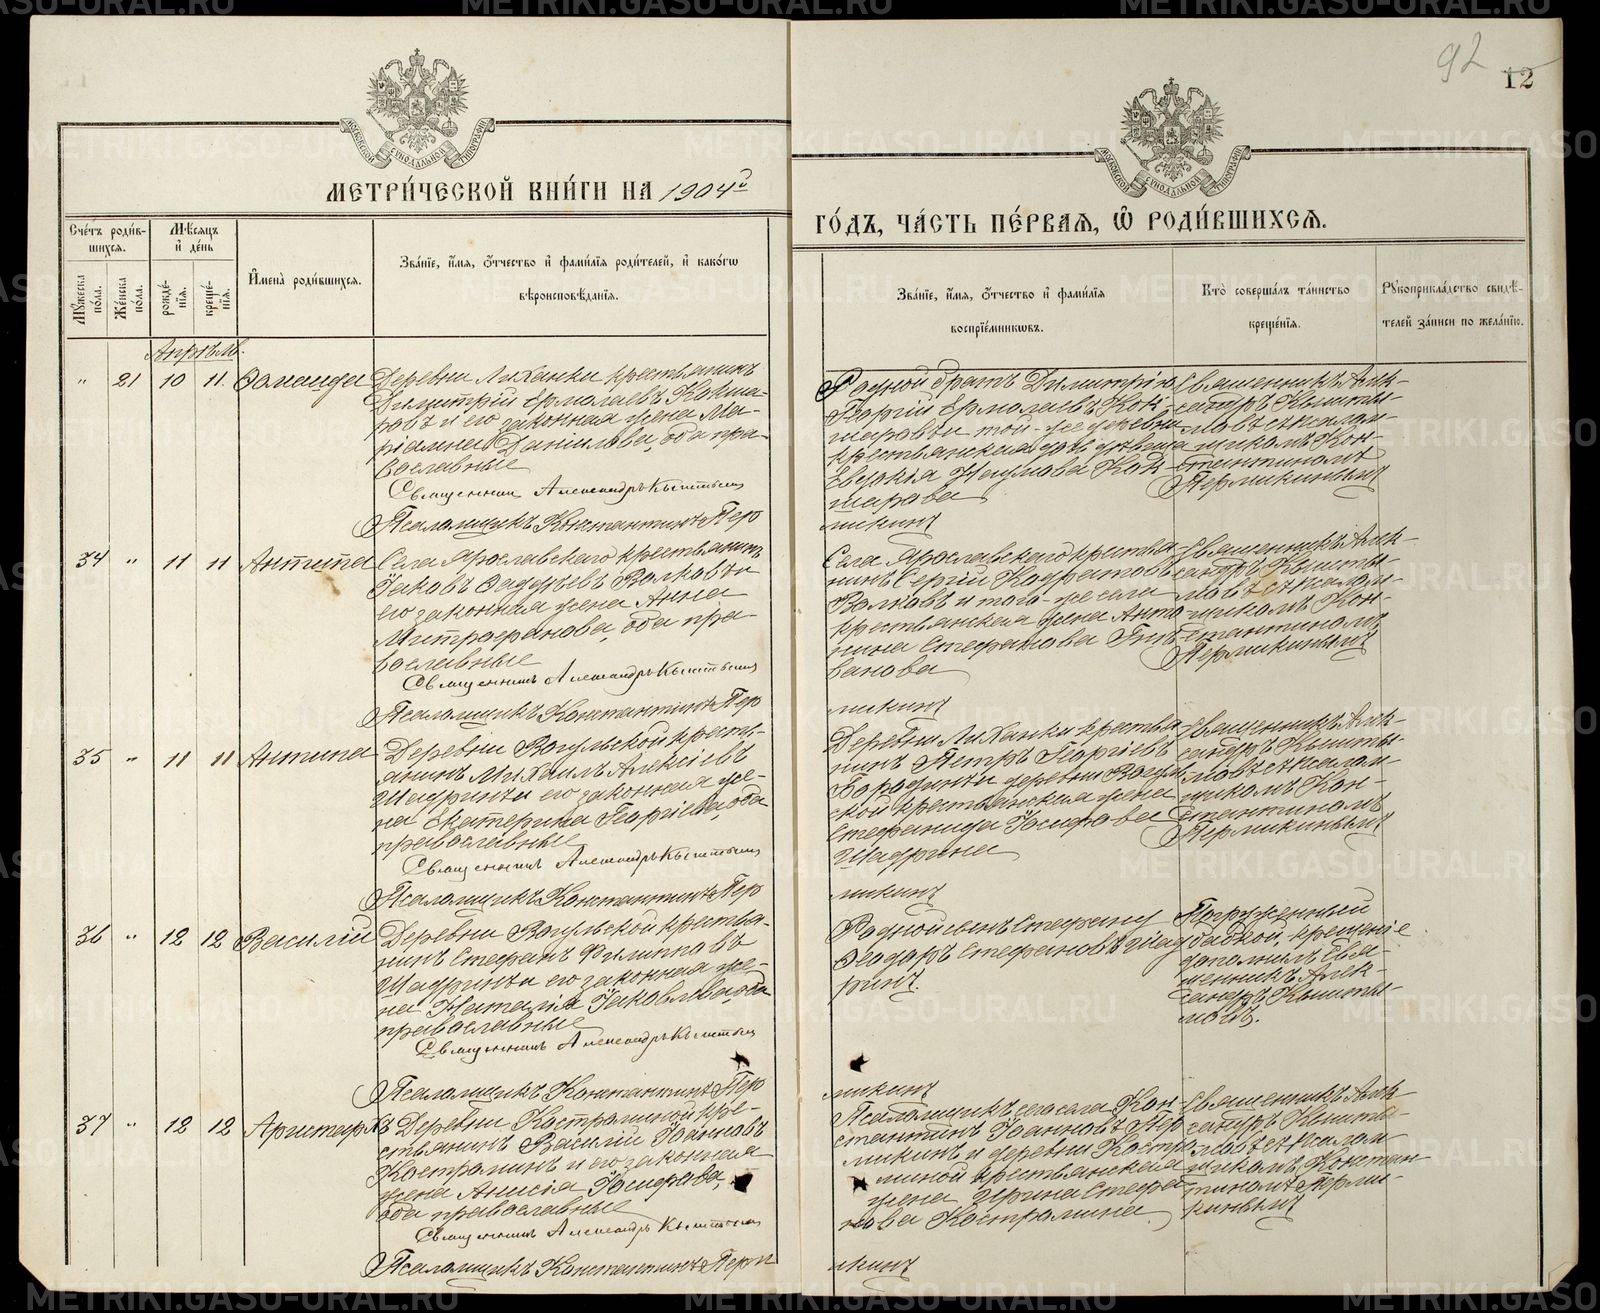 92
12
МЕТРИ́ЧЕСКОЙ КНИ́ГИ НА 1904й
ГО́ДЪ, ЧА́СТЬ ПЕ́РВАЯ, Ѡ РОДИ́ВШИХСЯ.
Сче́тъ роди́в-
шихся.
Мѣсяцъ
и де́нь
Мꙋжеска по́ла.
Же́нска по́ла.
рожде́-
нія.
креще́-
нія.
И҆мена̀ роди́вшихся.
Зва́ніе, и҆́мя, ѻ҆́тчество и҆ фами́лія роди́телей, и҆ како́гѡ
вѣроисповѣ́данія.
Зва́ніе, и҆́мя, ѻ҆́тчество и҆ фами́лія
воспріе́мниковъ.
Кто̀ соверша́лъ та́инство
креще́нія.
Рꙋкоприкла́дство свидѣ́-
телей за́писи по жела́нію.
Апрѣль.
" 21 10 11. Домнида
Деревни Лиханки крестьянинъ
Димитрій Ермолаевъ Кокша-
ровъ и его законная жена Ма-
ріамна Данилова, оба пра-
вославные
Священникъ Александръ Кыштымовъ
Псаломщикъ Константинъ Пер
Родной братъ Димитрію
Георгій Ермолаевъ Кок-
шаровъ и той-же деревни
крестьянская
Евдокія Наумова Кок-
шарова
микинъ
Священникъ Алек-
сандръ Кышты-
мовъ съ псалом-
щикомъ Кон-
стантиномъ
Пермикинымъ
34 " 11 11 Антипа
Села Ярославскаго крестьянинъ
Іаковъ Фаддѣевъ Волковъ и
его законная жена Анна
Митрофанова, оба пра-
вославные
Священникъ Александръ Кыштымовъ
Псаломщикъ Константинъ Пер
Села Ярославскаго крестья-
нинъ Сергій Кодратовъ
Волковъ и того-же села
крестьянская жена Анто-
нина Стефанова
ванова
микинъ
Священникъ Алек-
сандръ Кышты-
мовъ съ псалом-
щикомъ Кон-
стантиномъ
Пермикинымъ
35 " 11 11 Антипа
Деревни Вогульской кресть-
янинъ Михаилъ Алексіевъ
Шадринъ и его законная же-
на Екатерина Георгіева, оба
православные
Священникъ Александръ Кыштымовъ
Псаломщикъ Константинъ Пер
Деревни Лиханки крестья-
нинъ Петръ Георгіевъ
Бородинъ и деревни Вогуль-
ской крестьянская жена
Стефанида Іосифова
Шадрина
микинъ
Священникъ Алек-
сандръ Кышты-
мовъ съ псалом-
щикомъ Кон-
стантиномъ
Пермикинымъ
36 " 12 12 Василій
Деревни Вогульской крестья-
нинъ Стефанъ Филипповъ
Шадринъ и его законная же-
на Наталія Іаковлева, оба
православные
Священникъ Александръ Кыштымовъ
Псаломщикъ Константинъ Пер
Родной сынъ Стефану
Ѳеодоръ Стефановъ Шад-
ринъ.
микинъ
Погруженный
бабкой, крещеніе
дополнилъ Свя-
щенникъ Алек-
сандръ Кышты-
мовъ.
37 " 12 12 Аристархъ
Деревни Костроминой кре-
стьянинъ Василій Іоанновъ
Костроминъ и его законная
жена Анисія Іосифова,
оба православные
Священникъ Александръ Кыштымовъ
Псаломщикъ Константинъ Перм
Псаломщикъ сего села Кон-
стантинъ Іоанновъ Пер-
микинъ и деревни Костро-
миной крестьянская
жена Ирина Стефа-
нова Костромина
икинъ
Священникъ Алек-
сандръ Кышты-
мовъ съ псалом-
щикомъ Констан-
тиномъ Перми-
кинымъ
METRIKI.GASO-URAL.RU